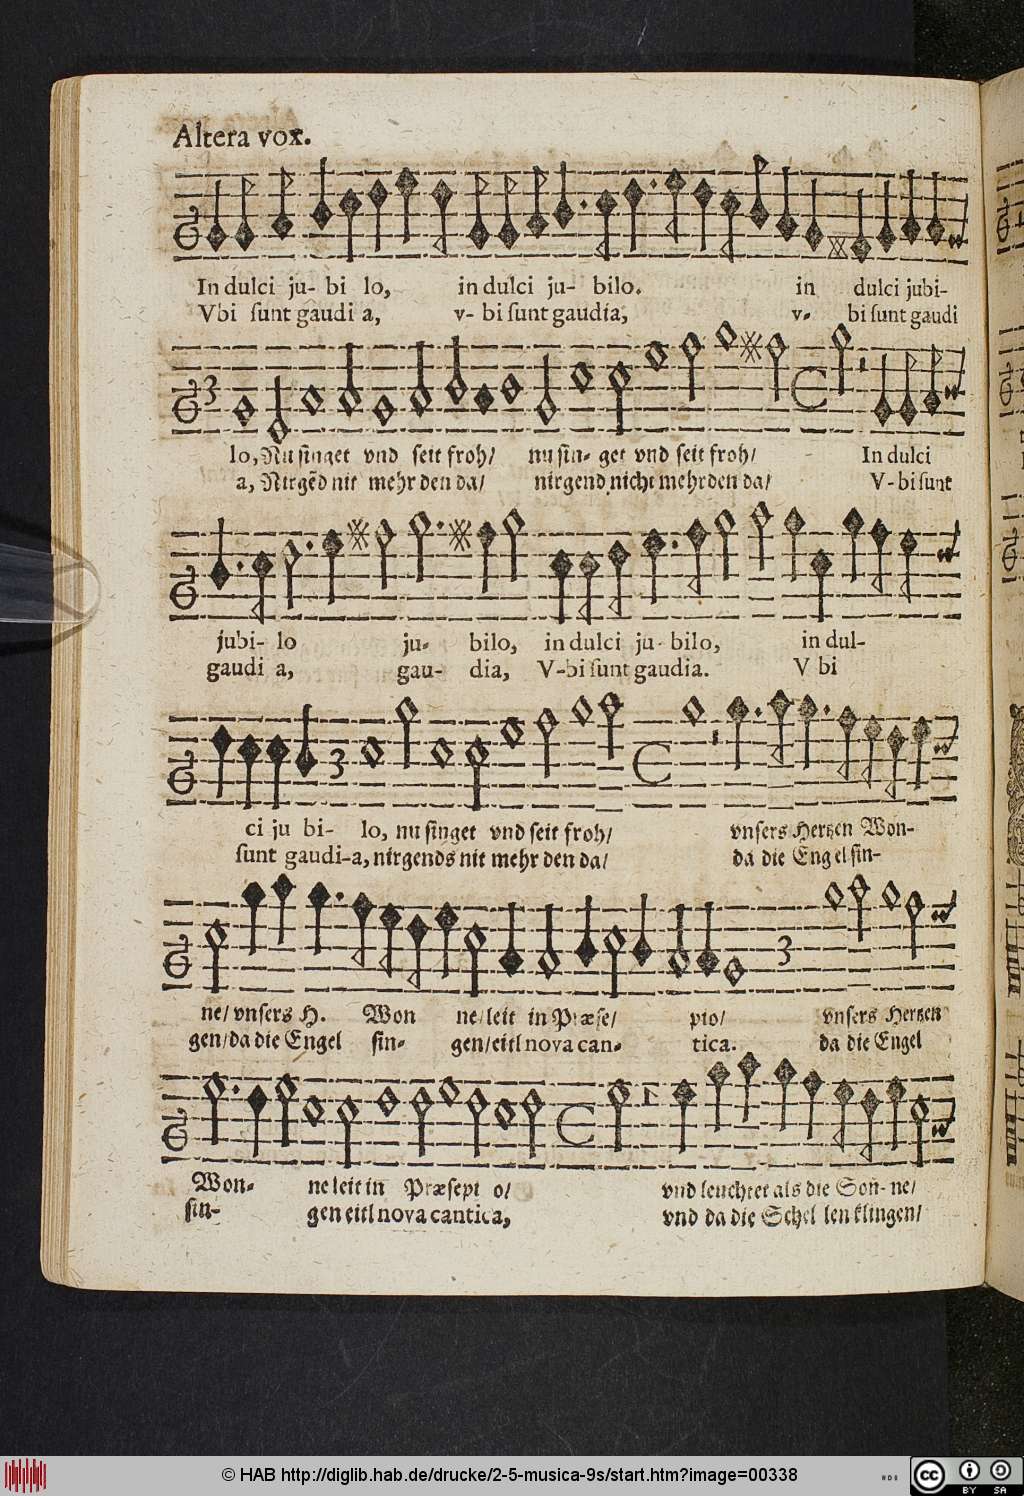 Altera vox.
In dulci ju- bi lo, in dulci ju- bilo. in dulci jubi-
Vbi sunt gaudi a, v- bi sunt gaudia, v- bi sunt gaudi
3
lo, Nu singet vnd seit froh/ nu sin- get vnd seit froh/ In dulci
a, Nirgẽd nit mehr den da/ nirgend nicht mehr den da/ V-bi sunt
jubi- lo ju- bilo, in dulci ju- bilo, in dul-
gaudi a, gau- dia, V-bi sunt gaudia. V bi
3
ci ju bi- lo, nu singet vnd seit froh/ vnsers Hertzen Won-
sunt gaudi-a, nirgends nit mehr den da/ da die Engel sin-
3
ne/ vnsers H. Won ne/ leit in Præse/ pio/ vnsers Hertzen
gen/ da die Engel sin- gen/ eitl nova can- tica. da die Engel
Won- ne leit in Præsepi o/ vnd leuchtet als die Son- ne/
sin- gen eitl nova cantica, vnd da die Schel len klingen/
© HAB http://diglib.hab.de/drucke/2-5-musica-9s/start.htm?image=00338
cc BY SA